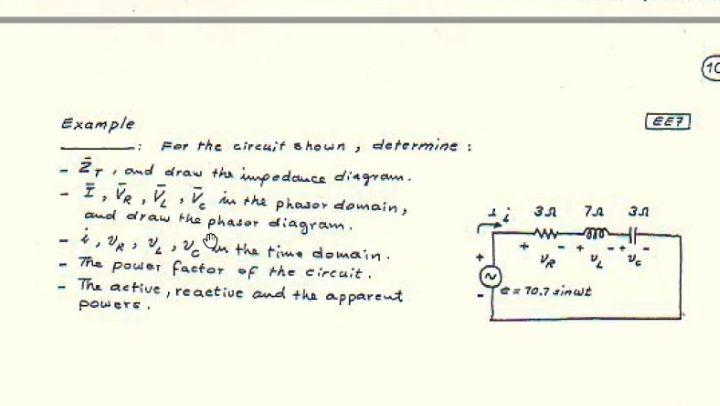 10
EE7
Example
: For the circuit shown, determine :
- Z̄T, and draw the impedance diagram.
- Ī, V̄R, V̄L, V̄c in the phasor domain,
and draw the phasor diagram.
- i, vR, vL, vc in the time domain.
- The power factor of the circuit.
- The active, reactive and the apparent
powers.
i 3Ω 7Ω 3Ω
+ - + - + -
vR vL vc
+
~
e = 70.7 sinωt
-